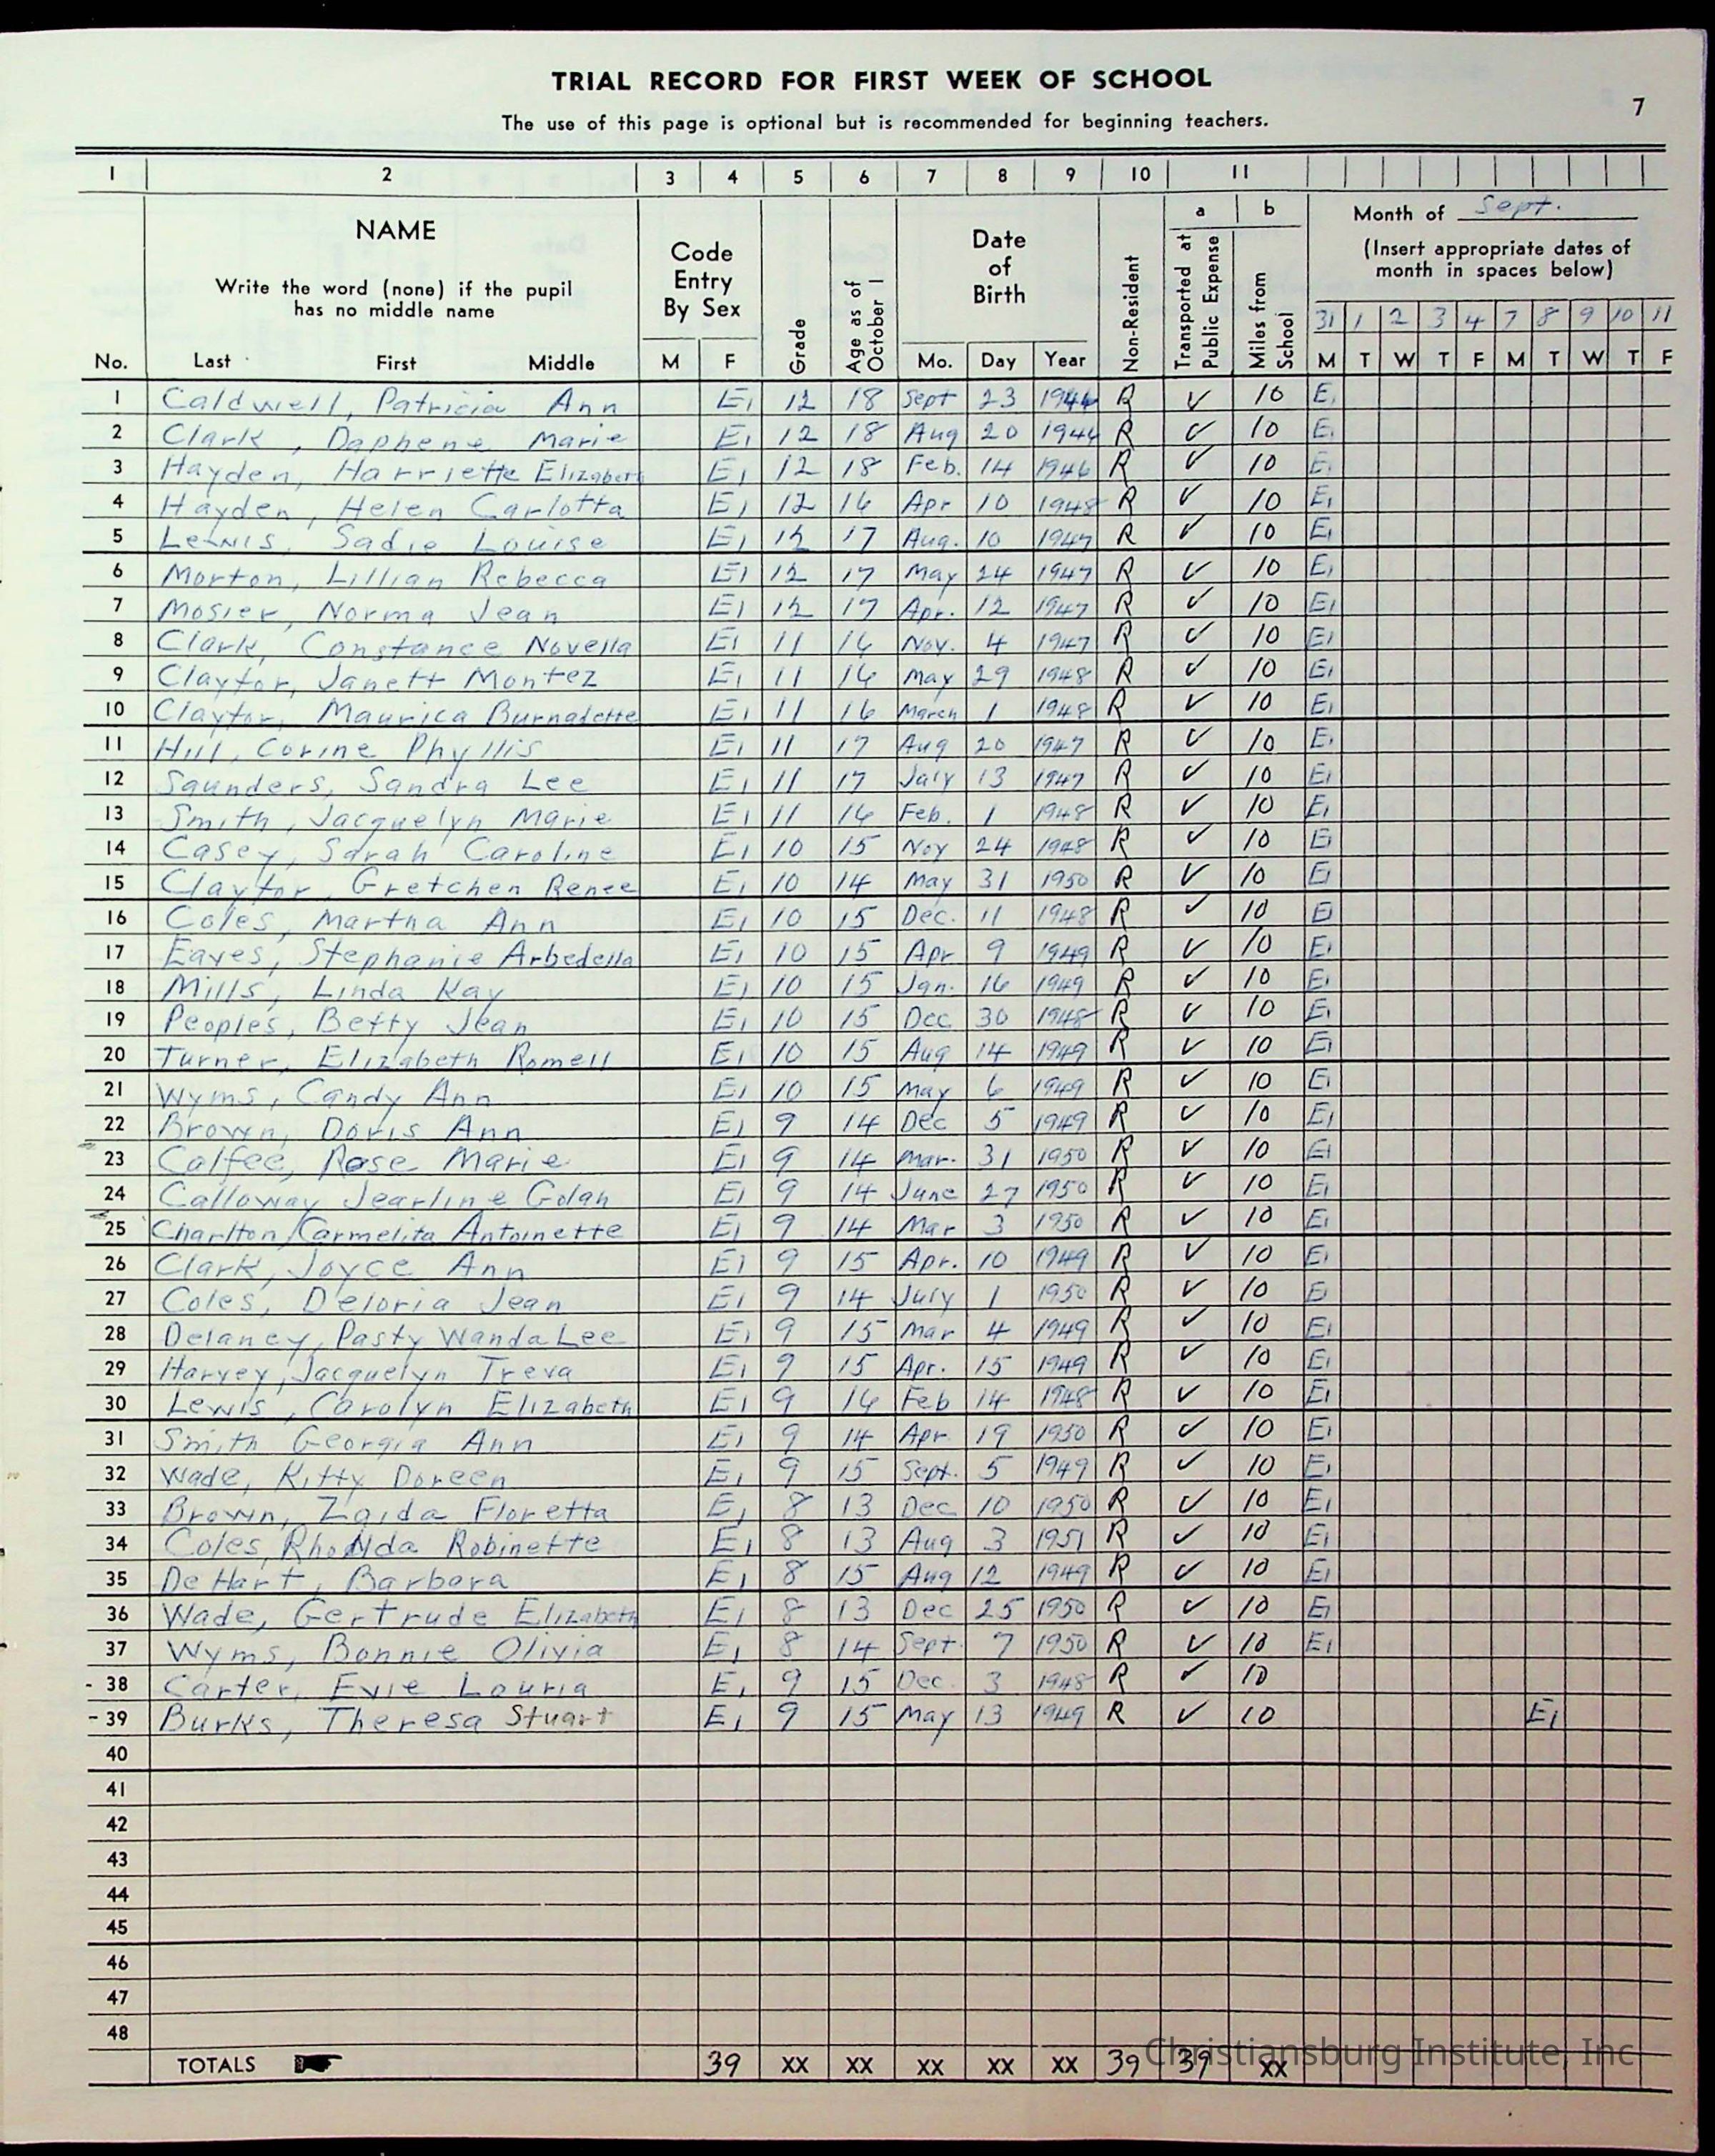 TRIAL RECORD FOR FIRST WEEK OF SCHOOL
7
The use of this page is optional but is recommended for beginning teachers.
1 2 3 4 5 6 7 8 9 10 11
a b
Month of Sept.
NAME
Code Entry By Sex
Grade
Age as of October 1
Date of Birth
Non-Resident
Transported at Public Expense
Miles from School
(Insert appropriate dates of month in spaces below)
Write the word (none) if the pupil has no middle name
31 1 2 3 4 7 8 9 10 11
No. Last First Middle M F Mo. Day Year M T W T F M T W T F
1 Caldwell, Patricia Ann E1 12 18 Sept 23 1946 R ✓ 10 E1
2 Clark, Daphene Marie E1 12 18 Aug 20 1946 R ✓ 10 E1
3 Hayden, Harriette Elizabeth E1 12 18 Feb. 14 1946 R ✓ 10 E1
4 Hayden, Helen Carlotta E1 12 16 Apr 10 1948 R ✓ 10 E1
5 Lewis, Sadie Louise E1 12 17 Aug. 10 1947 R ✓ 10 E1
6 Morton, Lillian Rebecca E1 12 17 May 24 1947 R ✓ 10 E1
7 Mosier, Norma Jean E1 12 17 Apr. 12 1947 R ✓ 10 E1
8 Clark, Constance Novella E1 11 16 Nov. 4 1947 R ✓ 10 E1
9 Claytor, Janett Montez E1 11 16 May 29 1948 R ✓ 10 E1
10 Claytor, Maurica Burnadette E1 11 16 March 1 1948 R ✓ 10 E1
11 Hill, Corine Phyllis E1 11 17 Aug 20 1947 R ✓ 10 E1
12 Saunders, Sandra Lee E1 11 17 July 13 1947 R ✓ 10 E1
13 Smith, Jacquelyn Marie E1 11 16 Feb. 1 1948 R ✓ 10 E1
14 Casey, Sarah Caroline E1 10 15 Nov 24 1948 R ✓ 10 E1
15 Claytor, Gretchen Renee E1 10 14 May 31 1950 R ✓ 10 E1
16 Coles, Martha Ann E1 10 15 Dec. 11 1948 R ✓ 10 E1
17 Eaves, Stephanie Arbedella E1 10 15 Apr 9 1949 R ✓ 10 E1
18 Mills, Linda Kay E1 10 15 Jan. 16 1949 R ✓ 10 E1
19 Peoples, Betty Jean E1 10 15 Dec 30 1948 R ✓ 10 E1
20 Turner, Elizabeth Romell E1 10 15 Aug 14 1949 R ✓ 10 E1
21 Wyms, Candy Ann E1 10 15 May 6 1949 R ✓ 10 E1
22 Brown, Doris Ann E1 9 14 Dec 5 1949 R ✓ 10 E1
23 Calfee, Rose Marie E1 9 14 Mar. 31 1950 R ✓ 10 E1
24 Calloway Jearline Golan E1 9 14 June 27 1950 R ✓ 10 E1
25 Charlton, Carmelita Antoinette E1 9 14 Mar 3 1950 R ✓ 10 E1
26 Clark, Joyce Ann E1 9 15 Apr. 10 1949 R ✓ 10 E1
27 Coles, Deloria Jean E1 9 14 July 1 1950 R ✓ 10 E1
28 Delaney, Pasty Wanda Lee E1 9 15 Mar 4 1949 R ✓ 10 E1
29 Harvey, Jacquelyn Treva E1 9 15 Apr. 15 1949 R ✓ 10 E1
30 Lewis, Carolyn Elizabeth E1 9 16 Feb 14 1948 R ✓ 10 E1
31 Smith Georgia Ann E1 9 14 Apr 19 1950 R ✓ 10 E1
32 Wade, Kitty Doreen E1 9 15 Sept. 5 1949 R ✓ 10 E1
33 Brown, Zaida Floretta E1 8 13 Dec 10 1950 R ✓ 10 E1
34 Coles, Rhonda Robinette E1 8 13 Aug 3 1951 R ✓ 10 E1
35 De Hart, Barbara E1 8 15 Aug 12 1949 R ✓ 10 E1
36 Wade, Gertrude Elizabeth E1 8 13 Dec 25 1950 R ✓ 10 E1
37 Wyms, Bonnie Olivia E1 8 14 Sept. 7 1950 R ✓ 10 E1
- 38 Carter, Evie Louria E1 9 15 Dec. 3 1948 R ✓ 10
- 39 Burks, Theresa Stuart E1 9 15 May 13 1949 R ✓ 10 E1
40
41
42
43
44
45
46
47
48
TOTALS 39 XX XX XX XX XX 39 39 XX
Christiansburg Institute, Inc